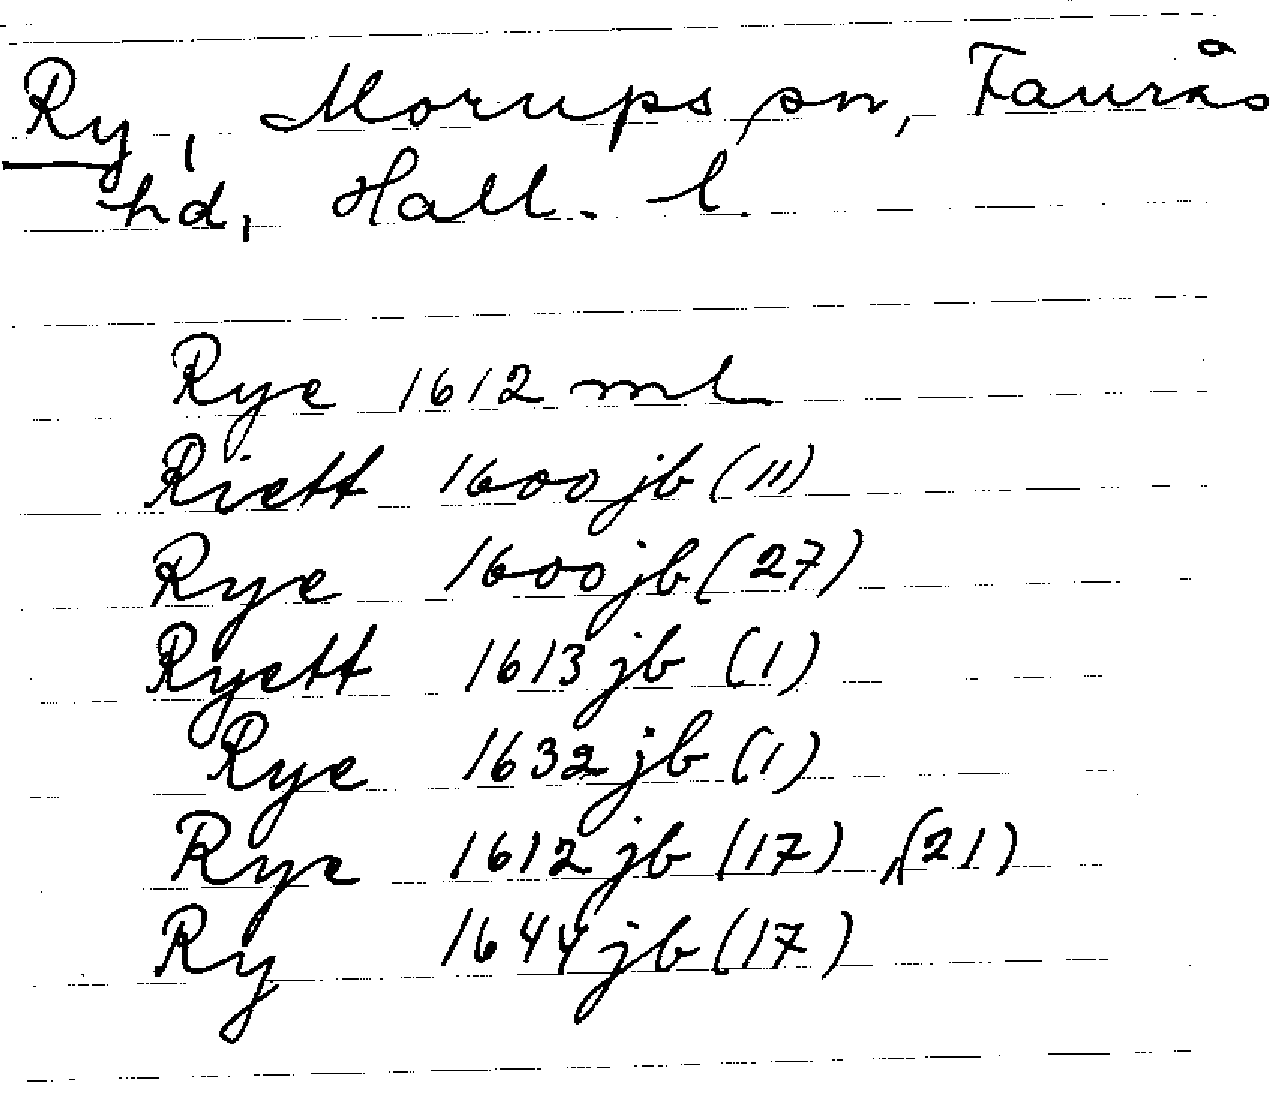 Ry, Morups sn, Faurås
hd, Hall. l.
Rye 1612 ml
Riett 1600 jb (11)
Rye 1600 jb (27)
Ryett 1613 jb (1)
Rye 1632 jb (1)
Rye 1612 jb (17), (21)
Ry 1644 jb (17)